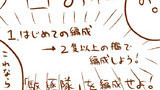 1. はじめての編成
→2隻以上の艦で
編成しよう!
これなら
を編成せよ!